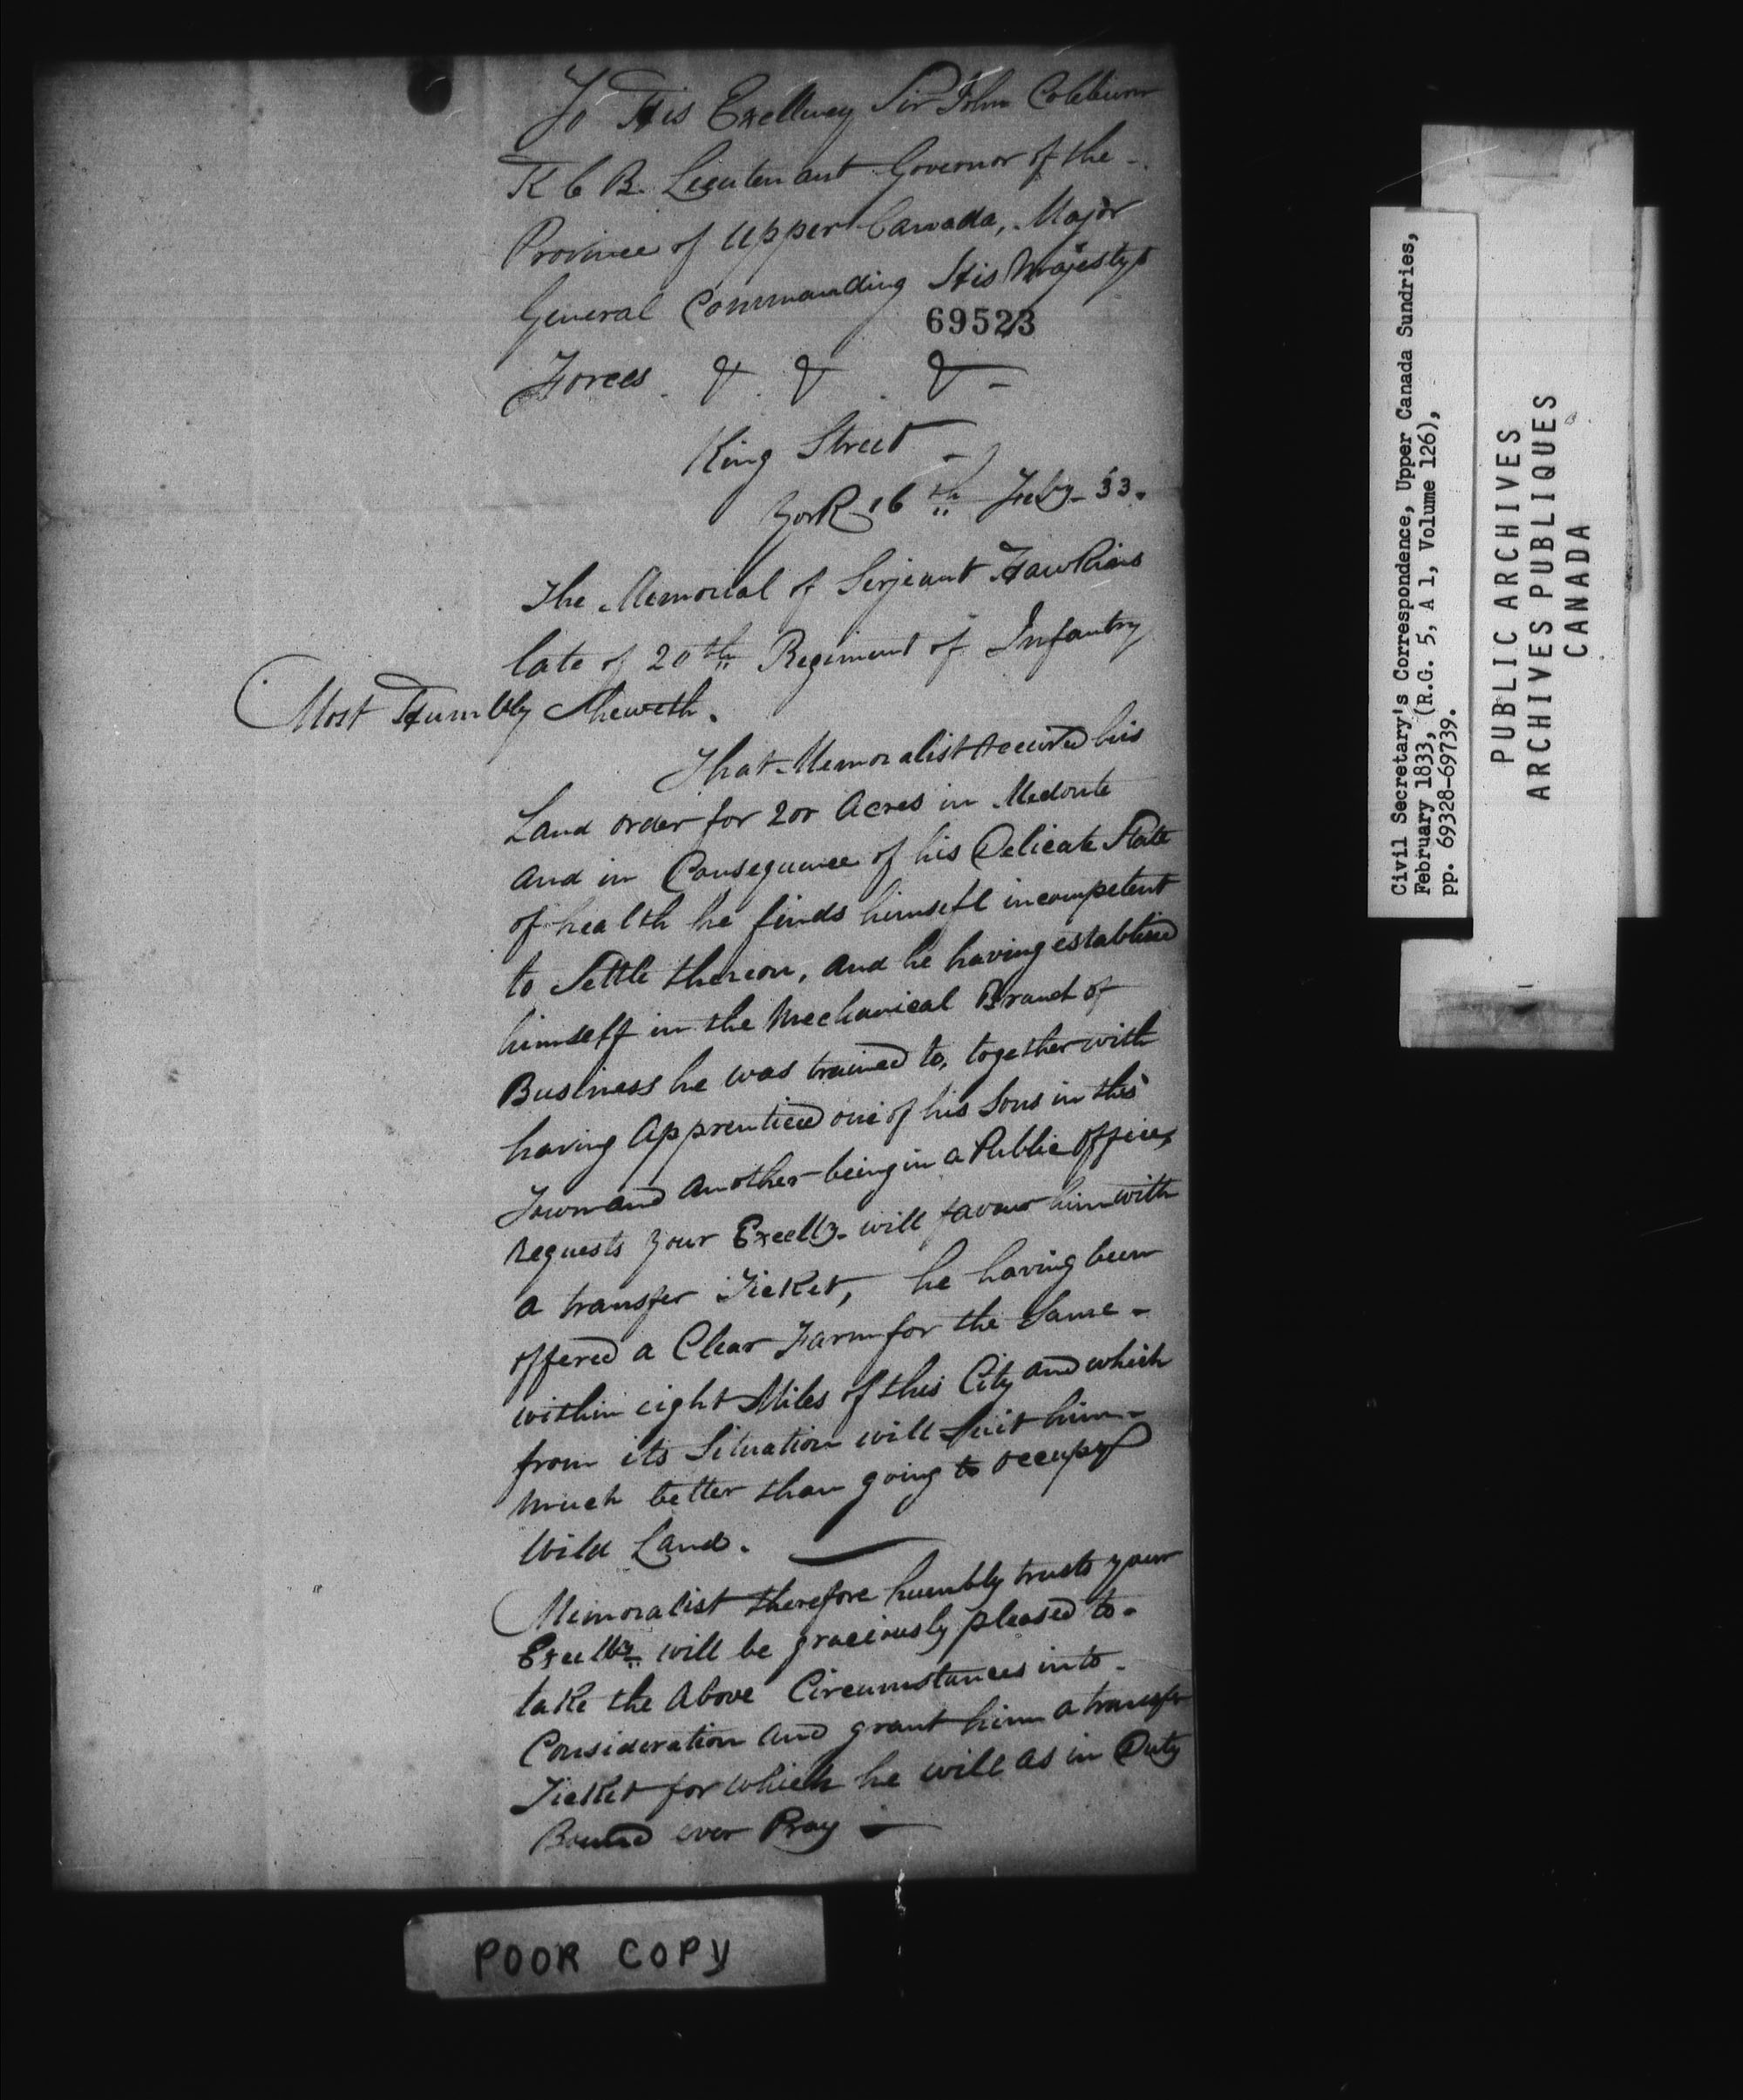 To His Exellency Sir John Colburn
K C B. Lieutenant Governor of the -
Province of Upper Canada, Major
General Commanding His Majesty's
69523
Forces. & . & . & -
King Street -
York 16th Feby - 33.
The Memorial of Serjeant Hawkins
late of 20th Regiment of Infantry
Most Humbly Sheweth.
That Memoralist received his
Land order for 200 Acres in Medonte
and in Consequence of his Delicate State
of health he finds himself incompetent
to Settle thereon, and he having establised
himself in the Mechanical Branch of
Business he was trained to, together with
having Apprenticed one of his Sons in this
Town and another being in a Public Office,
requests your Excelly - will favour him with
a transfer Ticket, he having been
offered a Clear Farm for the Same -
within eight Miles of this City and which
from its Situation will Suit him -
much better than going to occupy
Wild Land.
Memoralist therefore humbly trusts your
Excelly will be graciously pleased to -
take the Above Circumstances into -
Consideration and grant him a transfer
Ticket for which he will as in Duty
Bound ever Pray -
POOR COPY
Civil Secretary's Correspondence, Upper Canada Sundries,
February 1833, (R.G. 5, A 1, Volume 126),
pp. 69328-69739.
PUBLIC ARCHIVES
ARCHIVES PUBLIQUES
CANADA